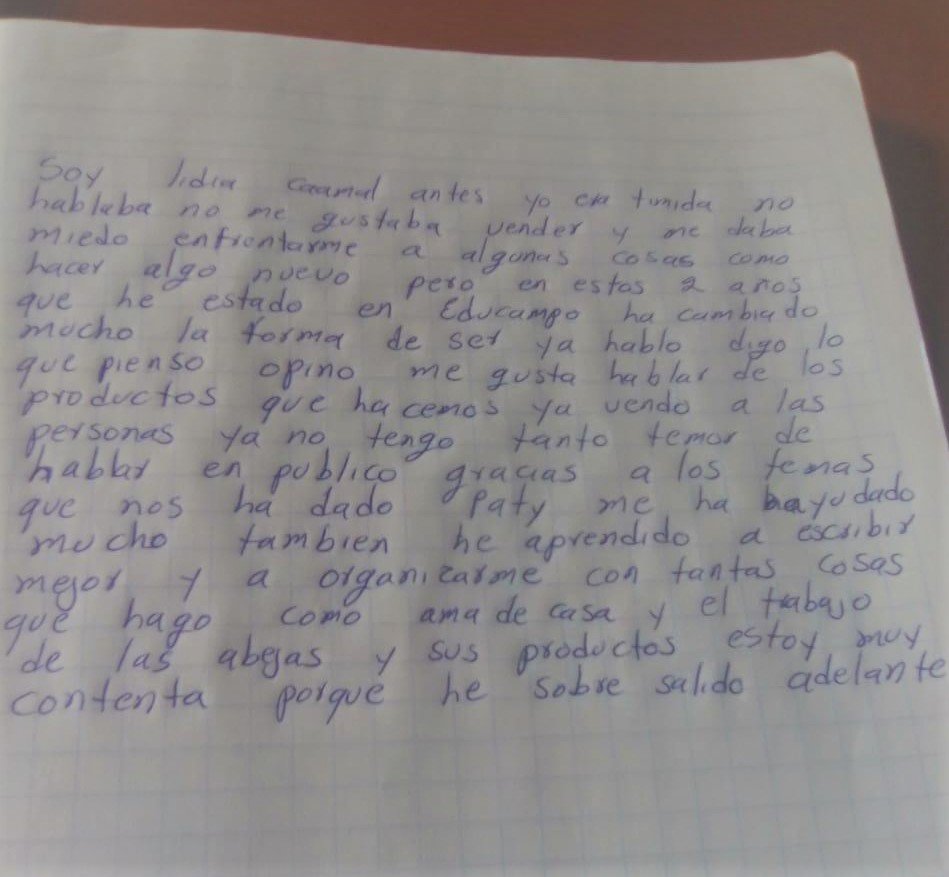 Soy lidia caamal antes yo era timida no
hablaba no me gustaba vender y me daba
miedo enfrontarme a algunas cosas como
hacer algo nuevo pero en estos 2 años
que he estado en Educampo ha cambiado
mucho la forma de ser ya hablo digo lo
que pienso opino me gusta hablar de los
productos que hacemos ya vendo a las
personas ya no tengo tanto temor de
hablar en publico gracias a los temas
que nos ha dado Paty me ha hayudado
mucho tambien he aprendido a escribir
mejor y a organizarme con tantas cosas
que hago como ama de casa y el trabajo
de las abejas y sus productos estoy muy
contenta porque he sobre salido adelante